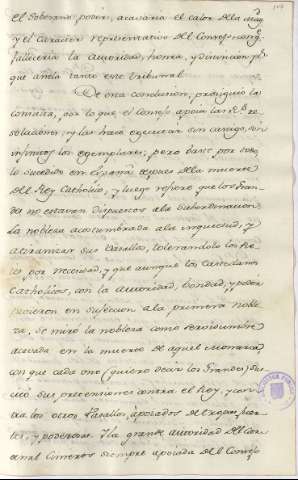 el Soberano poder, acavaria el calor de la
y el caracter representativo del Consejo
falleceria la autoridad, honra, y distincion
que anela tanto este Tribunal.
De esta conclusion, prosiguió la
consulta, por lo que el Consejo apoia las Rs re-
soluciones, y las hará executar sin cargo, son
infinitos los exemplares; pero baste por todos
lo sucedido en España despues de la muerte
del Rey Catholico, y luego refiere que los Gran-
des no estavan dispuestos a la Subordinacion
La nobleza acostumbrada ala inquietud, y
a tiranizar sus Vasallos, tolerandolo los Re-
yes, por necesidad, y que aunque los
Catholicos, con la autoridad, bondad, y poder
pusieron en sujecion a la primera noble-
za, se miró la nobleza como
acavada en la muerte de aquel Monarca,
con que cada uno (quiero decir los Grandes)
sus pretensiones contra el Rey, y con-
tra los otros Vasallos, apoiados de tropas,
y poderosos. Y la grande autoridad del Car-
denal Cisneros siempre apoiada del Consejo